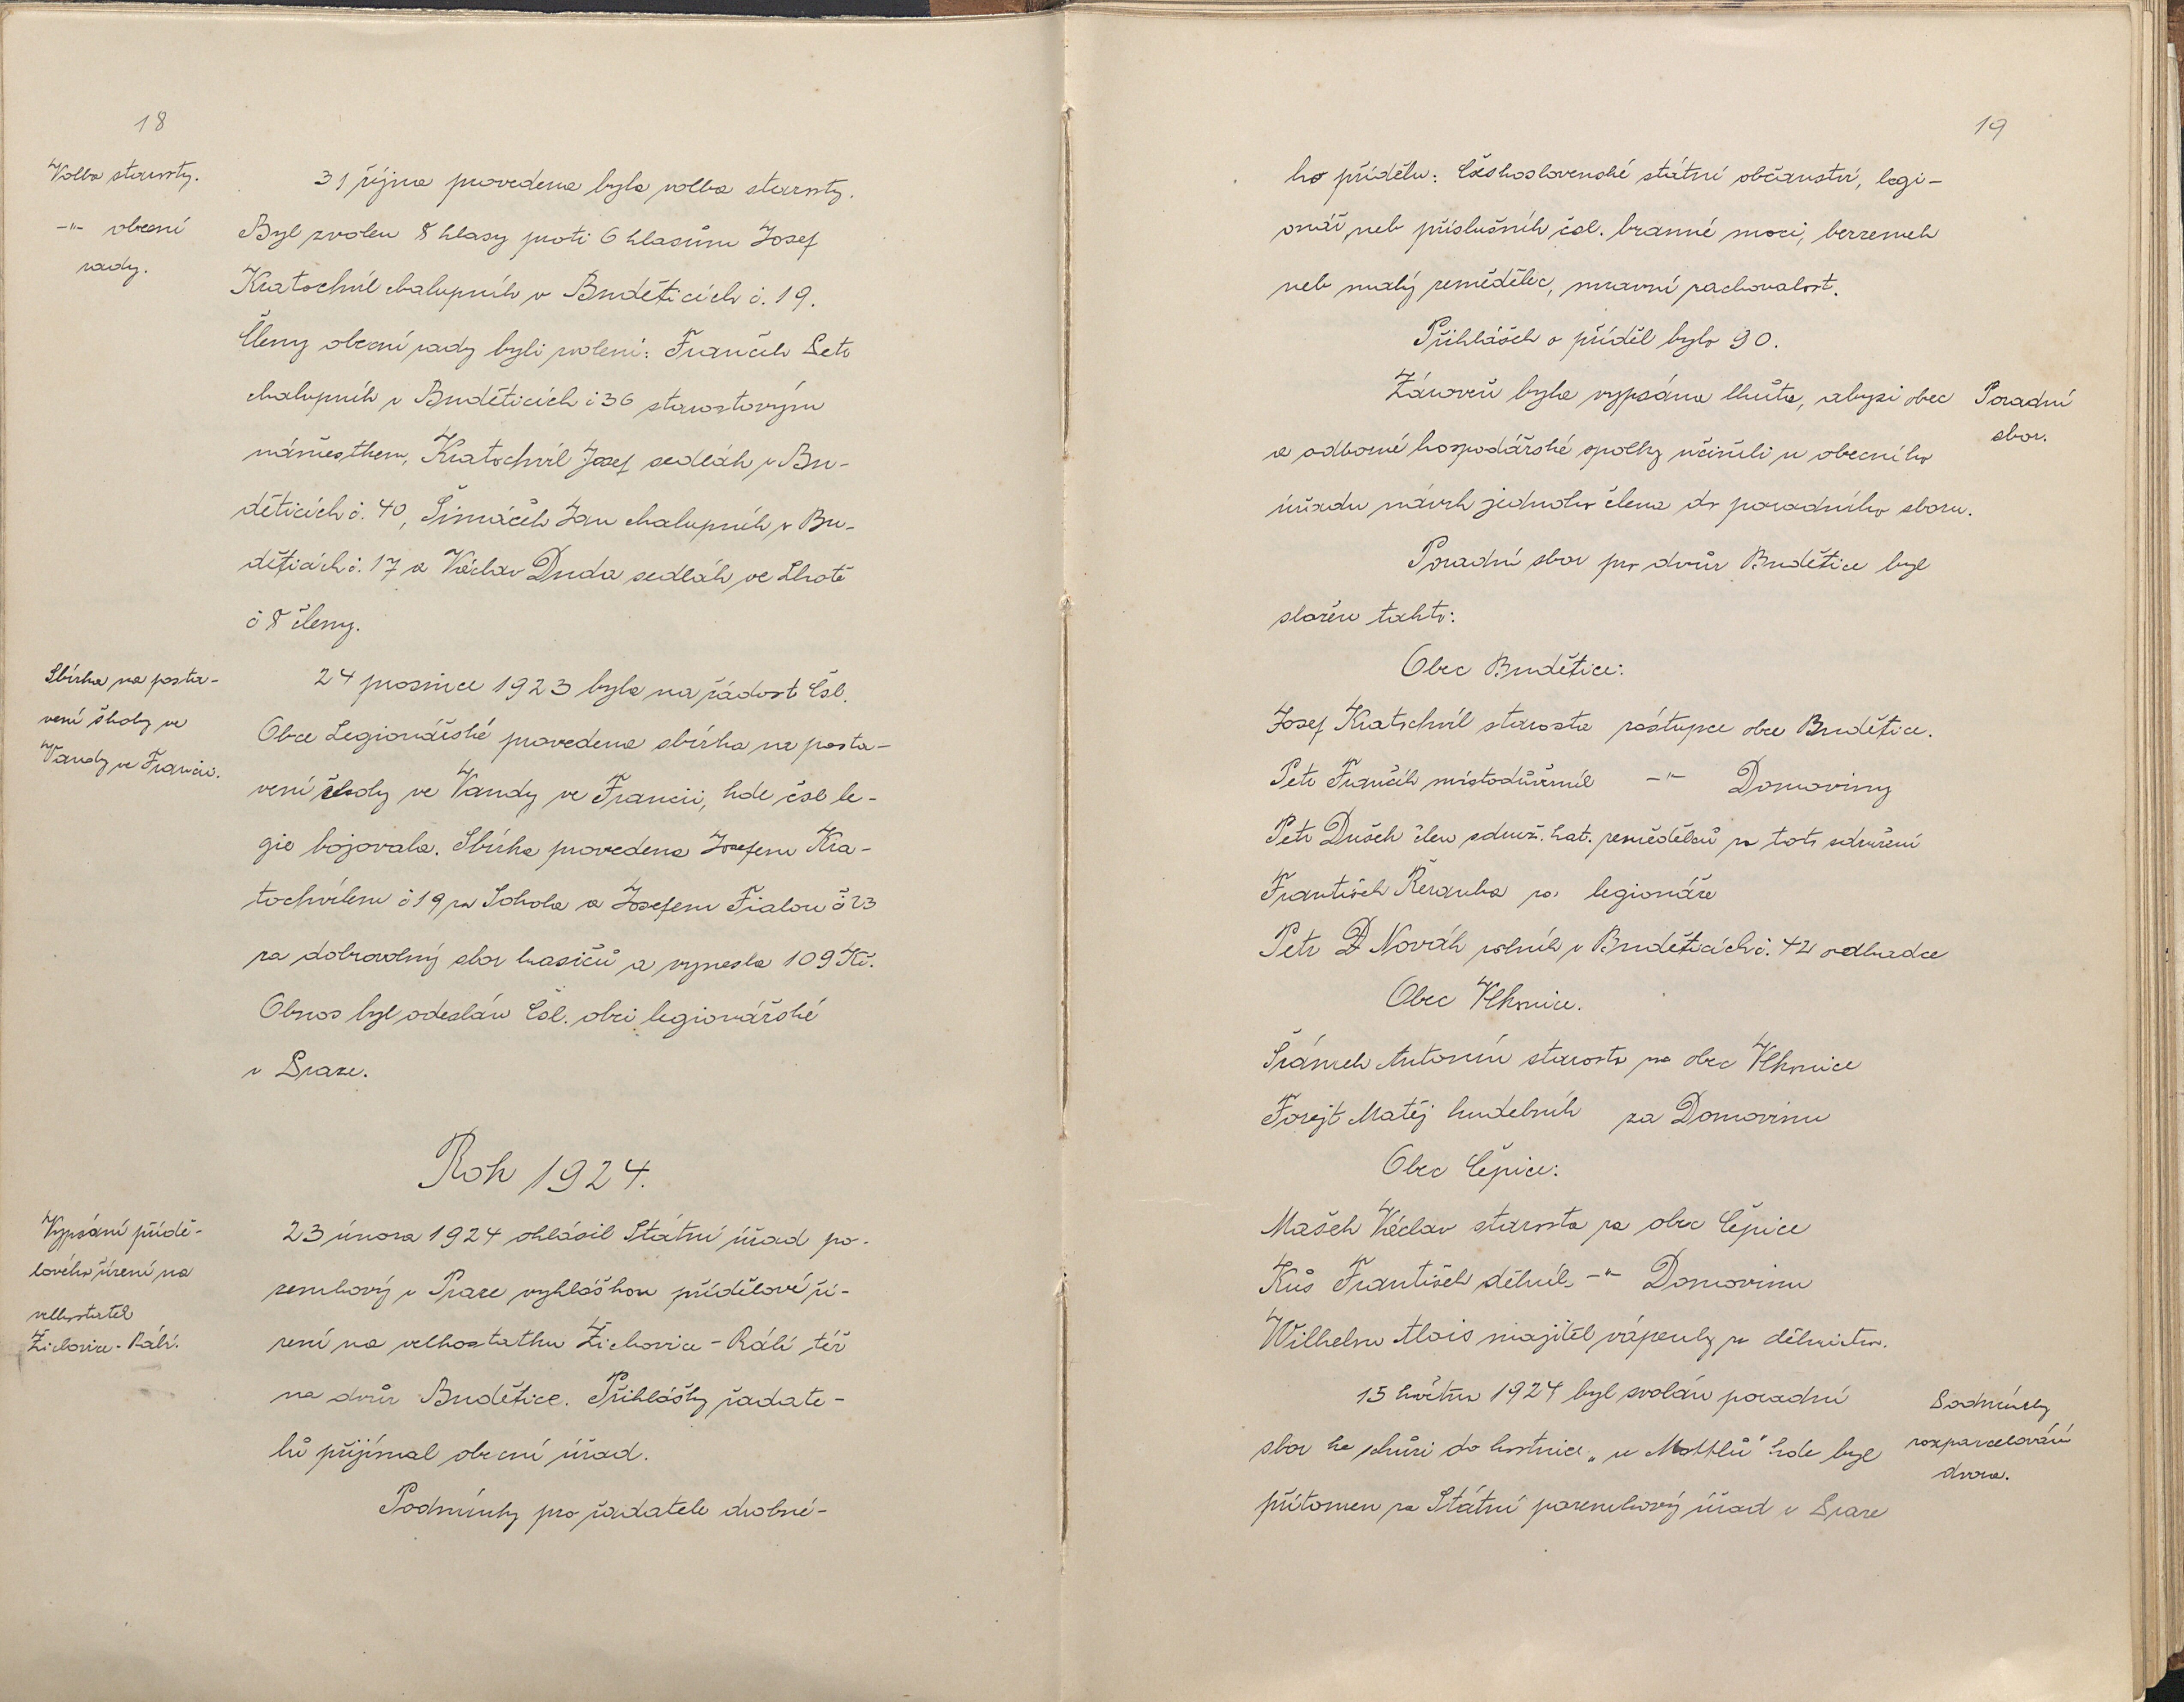 18
Volba starosty.
-"- obecní
rady.
31 října provedena byla volba starosty.
Byl zvolen 8 hlasy proti 6 hlasům Josef
Kratochvíl chalupník v Buděticích č. 19.
Členy obecní rady byli zvoleni: Frančík Petr
chalupník v Buděticích č 36 starostovým
náměstkem, Kratochvíl Josef sedlák v Bu-
děticích č. 40, Šimáček Jan chalupník v Bu-
děticích č. 17 a Václav Duda sedlák ve Lhotě
č 8 členy.
Sbírka na posta-
vení školy ve
Vandy ve Francii.
24 prosince 1923 byla na žádost Čsl.
Obce Legionářské provedena sbírka na posta-
vení školy ve Vandy ve Francii, kde čsl le-
gie bojovala. Sbírka provedena Josefem Kra-
tochvílem č 19 za Sokola a Josefem Fialou č 23
za dobrovolný sbor hasičů a vynesla 109 Kč.
Obnos byl odeslán Čsl. obci legionářské
v Praze.
Rok 1924.
Vypsání přídě-
lového řízení na
velkostatek
Žichovice - Rábí.
23 února 1924 ohlásil Státní úřad po-
zemkový v Praze vyhláškou přídělové ří-
zení na velkostatku Žichovice - Rábí též
na dvůr Budětice. Přihlášky žadate-
lů přijímal obecní úřad.
Podmínky pro žadatele drobné-
19
ho přídělu: Československé státní občanství, legi-
onář, neb příslušník čsl. branné moci, bezzemek
neb malý zemědělec, mravní zachovalost.
Přihlášek o příděl bylo 90.
Zároveň byla vypsána lhůta, aby si obec
a odborné hospodářské spolky učinili u obecního
úřadu návrh jednoho člena do poradního sboru.
Poradní
sbor.
Poradní sbor pro dvůr Budětice byl
složen takto:
Obec Budětice:
Josef Kratochvíl starosta zástupce obce Budětice.
Petr Frančík místodůvěrník -"- Domoviny
Petr Dušek člen sdruž. kat. zemědělců za toto sdružení
František Řeřanka za legionáře
Petr Novák rolník v Buděticích č. 42 odhadce
Obec Vlkonice.
Šrámek Antonín starosta za obec Vlkonice
Forejt Matěj hudebník za Domovinu
Obec Čepice:
Mašek Václav starosta za obec Čepice
Kůs František dělník -"- Domovinu
Wilhelm Alois majitel vápenky za dělnictvo.
15 května 1924 byl svolán poradní
sbor ke schůzi do hostince „u Mottlů" kde byl
přítomen za Státní pozemkový úřad v Praze
Podmínky
rozparcelování
dvora.